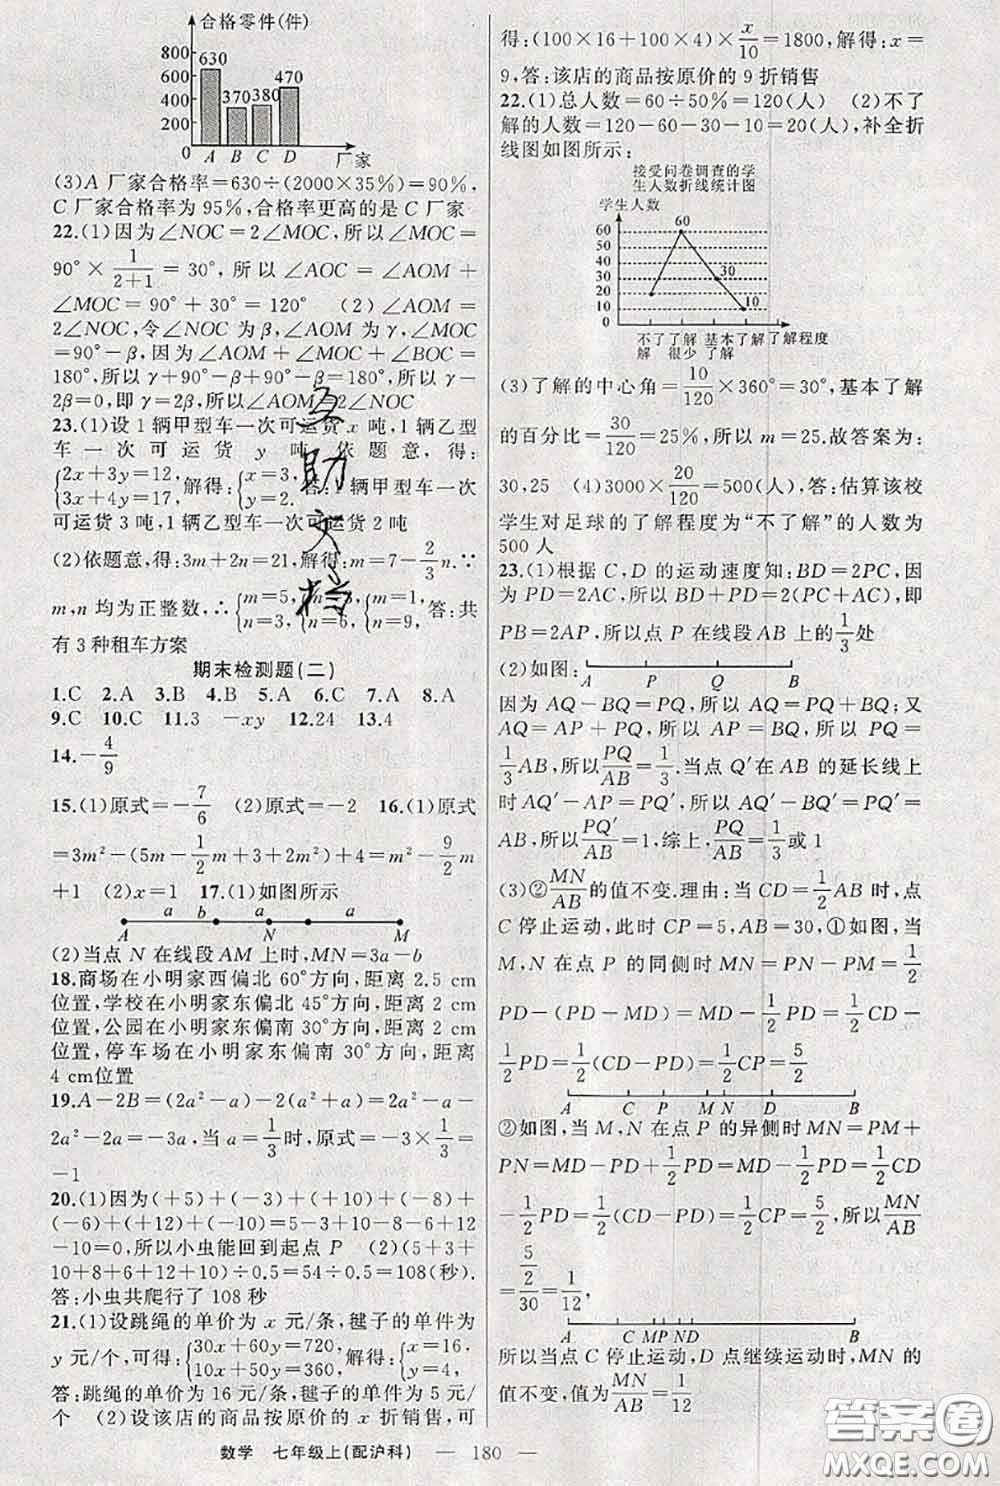 合格零件(件)
800
600
400
200
0
630
370
380
470
A B C D
厂家
(3)A 厂家合格率=630÷(2000×35%)=90%,
C 厂家合格率为 95%,合格率更高的是 C 厂家
22.(1)因为∠NOC=2∠MOC,所以∠MOC=
90°×1/(2+1)=30°,所以∠AOC=∠AOM+
∠MOC=90°+30°=120° (2)∠AOM=
2∠NOC,令∠NOC为β,∠AOM为γ,∠MOC
=90°-β,因为∠AOM+∠MOC+∠BOC=
180°,所以γ+90°-β+90°-β=180°,所以γ-
2β=0,即γ=2β,所以∠AOM=2∠NOC
23.(1)设 1 辆甲型车一次可运货 x 吨,1 辆乙型
车一次可运货 y 吨,依题意,得:
{2x+3y=12, 3x+4y=17, 解得:{x=3, y=2. 答:1 辆甲型车一次
可运货 3 吨,1 辆乙型车一次可运货 2 吨
(2)依题意,得:3m+2n=21,解得:m=7-2/3n.∵
m,n 均为正整数,∴{m=5, n=3, {m=3, n=6, {m=1, n=9, 答:共
有 3 种租车方案
期末检测题(二)
1.C 2.A 3.B 4.B 5.A 6.C 7.A 8.A
9.C 10.C 11.3 -xy 12.24 13.4
14.-4/9
15.(1)原式=-7/6 (2)原式=-2 16.(1)原式
=3m²-(5m-1/2m+3+2m²)+4=m²-9/2m
+1 (2)x=1 17.(1)如图所示
a b a a
A N M
(2)当点 N 在线段 AM 上时,MN=3a-b
18.商场在小明家西偏北 60°方向,距离 2.5 cm
位置,学校在小明家东偏北 45°方向,距离 2 cm
位置,公园在小明家东偏南 30°方向,距离 2 cm
位置,停车场在小明家东偏南 30°方向,距离
4 cm位置
19.A-2B=(2a²-a)-2(a²+a)=2a²-a-
2a²-2a=-3a,当 a=1/3时,原式=-3×1/3=
-1
20.(1)因为(+5)+(-3)+(+10)+(-8)+
(-6)+(+12)+(-10)=5-3+10-8-6+12
-10=0,所以小虫能回到起点 P (2)(5+3+
10+8+6+12+10)÷0.5=54÷0.5=108(秒).
答:小虫共爬行了 108 秒
21.(1)设跳绳的单价为 x 元/条,毽子的单件为
y 元/个,可得:{30x+60y=720, 10x+50y=360, 解得:{x=16, y=4,
答:跳绳的单价为 16 元/条,毽子的单件为 5 元/
个 (2)设该店的商品按原价的 x 折销售,可
得:(100×16+100×4)×x/10=1800,解得:x=
9,答:该店的商品按原价的 9 折销售
22.(1)总人数=60÷50%=120(人) (2)不了
解的人数=120-60-30-10=20(人),补全折
线图如图所示:
接受问卷调查的学
生人数折线统计图
学生人数
60
50
40
30
20
10
0
60
30
10
不了 了解 基本了解 了解程度
解 很少 了解
(3)了解的中心角=10/120×360°=30°,基本了解
的百分比=30/120=25%,所以 m=25.故答案为:
30,25 (4)3000×20/120=500(人),答:估算该校
学生对足球的了解程度为“不了解”的人数为
500 人
23.(1)根据 C,D 的运动速度知:BD=2PC,因
为 PD=2AC,所以 BD+PD=2(PC+AC),即
PB=2AP,所以点 P 在线段 AB 上的1/3处
(2)如图:
A P Q B
因为 AQ-BQ=PQ,所以 AQ=PQ+BQ;又
AQ=AP+PQ,所以 AP=BQ,所以 PQ=
1/3AB,所以PQ/AB=1/3.当点 Q′在 AB 的延长线上
时 AQ′-AP=PQ′,所以 AQ′-BQ′=PQ′=
AB,所以PQ′/AB=1,综上,PQ/AB=1/3或 1
(3)②MN/AB的值不变.理由:当 CD=1/2AB 时,点
C 停止运动,此时 CP=5,AB=30,①如图,当
M,N 在点 P 的同侧时 MN=PN-PM=1/2
PD-(PD-MD)=MD-1/2PD=1/2CD-
1/2PD=1/2(CD-PD)=1/2CP=5/2
A C P M N D B
②如图,当 M,N 在点 P 的异侧时 MN=PM+
PN=MD-PD+1/2PD=MD-1/2PD=1/2CD
-1/2PD=1/2(CD-PD)=1/2CP=5/2,所以MN/AB
=(5/2)/30=1/12,
A C M P N D B
所以当点 C 停止运动,D 点继续运动时,MN 的
值不变,值为MN/AB=1/12
数学 七年级上(配沪科) — 180 —
助
文
档
答案卷
MXQE.COM